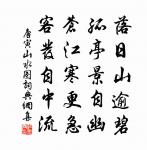 落日山逾碧
孤亭景自幽
蒼江寒更急
客發自中流
唐寅山水圖詞典網集